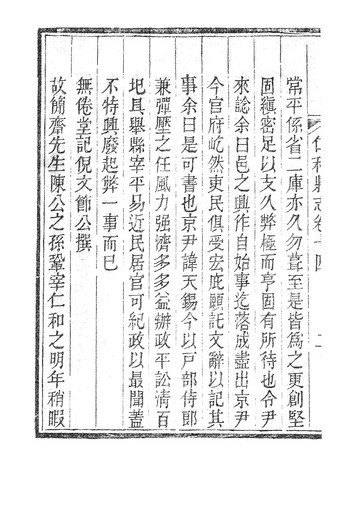 仁和縣志卷十四
常平係省二庫亦久勿葺至是皆爲之更創堅
固縝密足以支久弊極而亨固有所待也令尹
來諗余曰邑之興作自始事迄落成盡出京尹
今官府屹然吏民俱受宏庇願託文辭以記其
事余曰是可書也京尹諱天錫今以戸部侍郎
兼彈壓之任風力强濟多多益辦政平訟淸百
圯具舉縣宰平易近民居官可紀政以最聞蓋
不特興廢起弊一事而已
無倦堂記倪文節公撰
故簡齋先生陳公之孫鞏宰仁和之明年稍暇